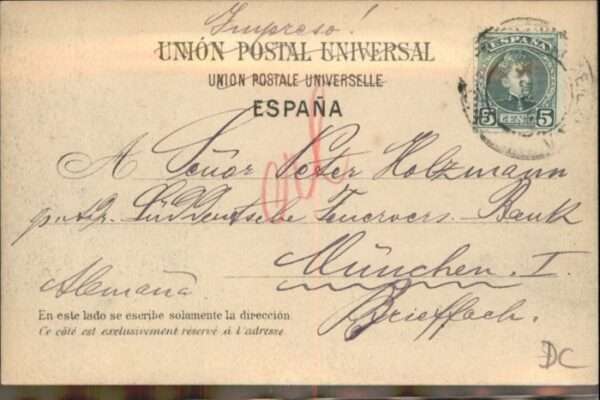 Impreso!
UNIÓN POSTAL UNIVERSAL
UNION POSTALE UNIVERSELLE
ESPAÑA
ESPAÑA
5 CENT 5
A Señor Peter Holzmann
Süddeutsche Feuervers. Bank
München. I.
Alemaña
Brieffach.
En este lado se escribe solamente la dirección
Ce côté est exclusivement réservé à l'adresse.
DC